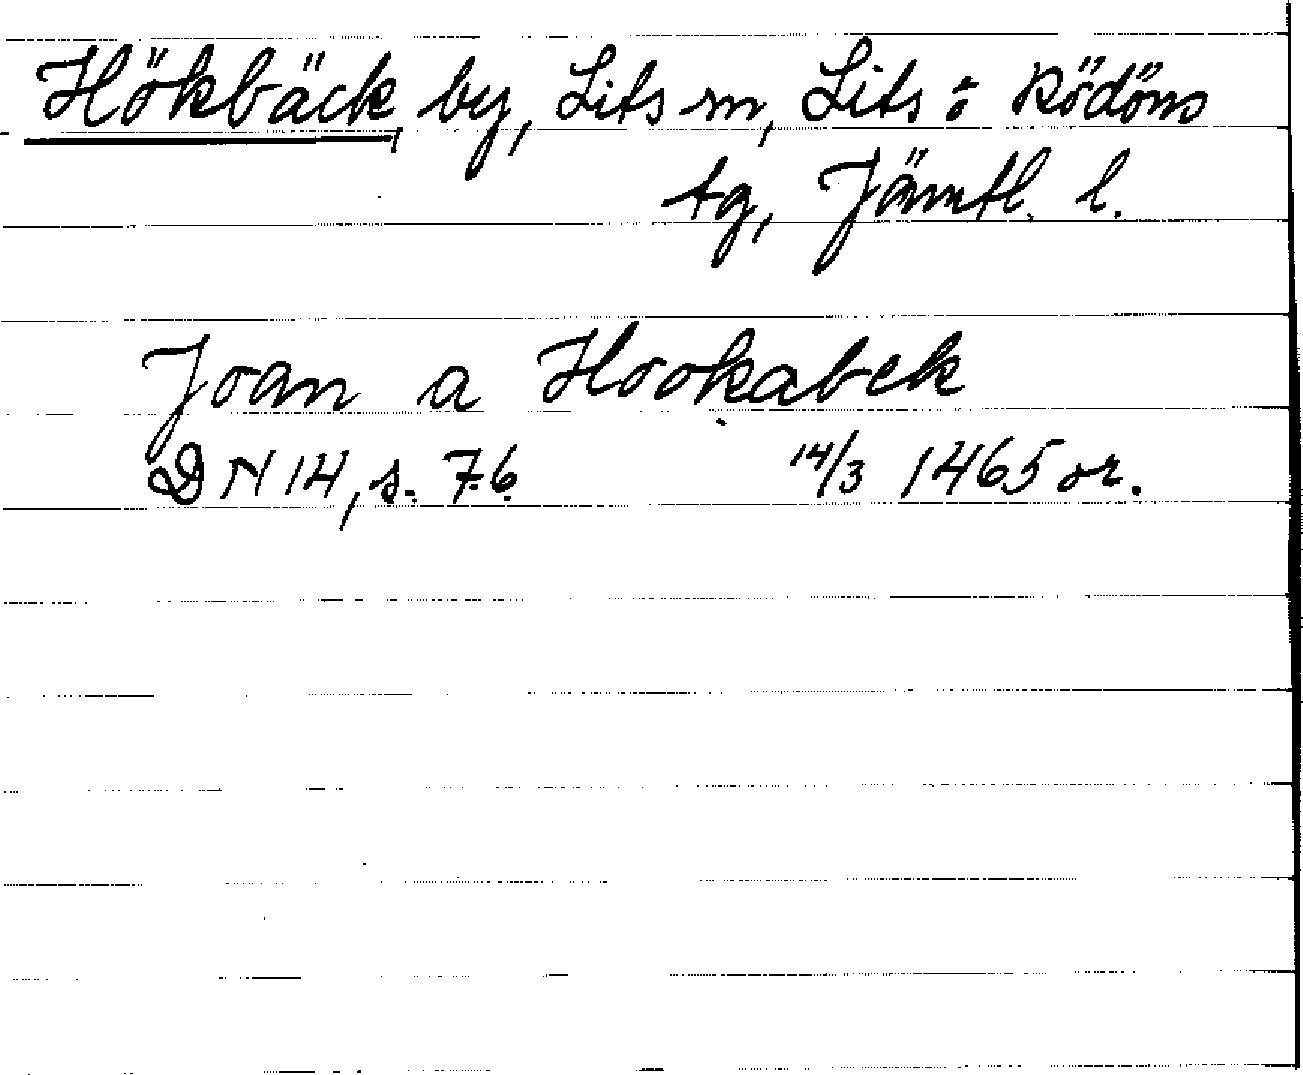 Hökbäck, by, Lits sn, Lits o Rödöns
tg, Jämtl. l.
Joan a Hookabek
DN 14, s. 76 14/3 1465 or.